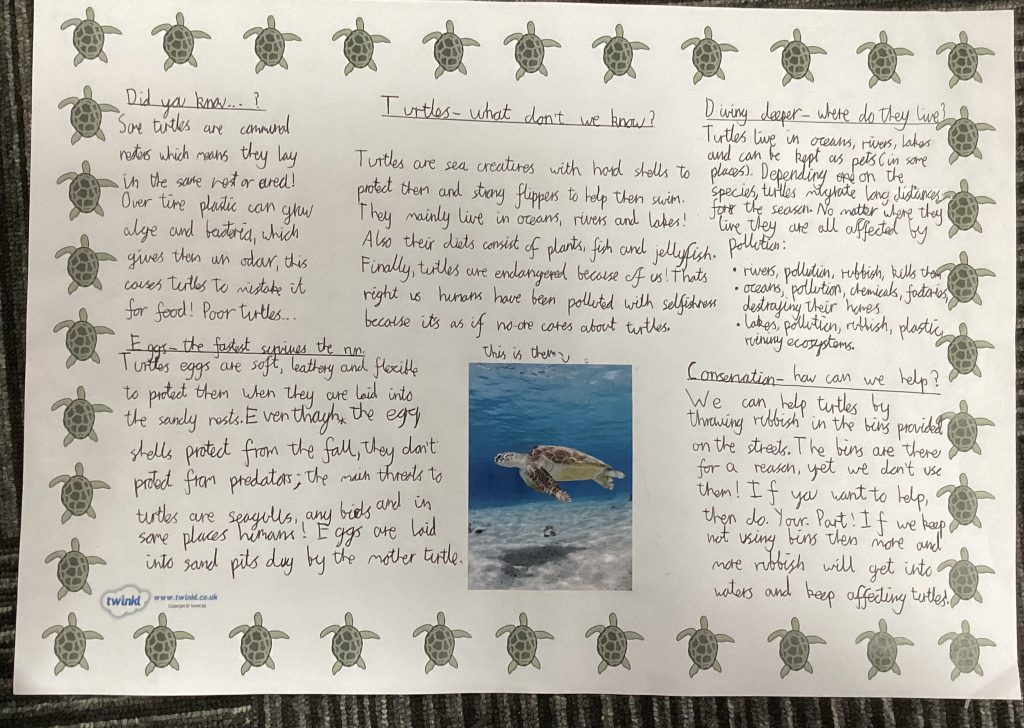 Did you know...?
Some turtles are communal
nesters which means they lay
in the same nest or area!
Over time plastic can grow
alge and bacteria, which
gives them an odour, this
causes turtles to mistake it
for food! Poor turtles...
Eggs - the fastest survives the run
Turtles eggs are soft, leathery and flexible
to protect them when they are laid into
the sandy nests. Even though, the egg
shells protect from the fall, they don't
protect from predators; the main threats to
turtles are seagulls, any birds and in
some places humans! Eggs are laid
into sand pits dug by the mother turtle.
twinkl www.twinkl.co.uk
Turtles - what don't we know?
Turtles are sea creatures with hard shells to
protect them and strong flippers to help them swim.
They mainly live in oceans, rivers and lakes!
Also their diets consist of plants, fish and jellyfish.
Finally, turtles are endangered because of us! Thats
right us humans have been polluted with selfishness
because its as if no-one cares about turtles.
this is them
Diving deeper - where do they live?
Turtles live in oceans, rivers, lakes
and can be kept as pets (in some
places). Depending on the
species, turtles migrate long distances
for the season. No matter where they
live they are all affected by
pollution:
• rivers, pollution, rubbish, kills them
• oceans, pollution, chemicals, factories,
destroying their homes.
• lakes, pollution, rubbish, plastic,
ruining ecosystems.
Conservation - how can we help?
We can help turtles by
throwing rubbish in the bins provided
on the streets. The bins are there
for a reason, yet we don't use
them! If you want to help,
then do. Your. Part! If we keep
not using bins then more and
more rubbish will get into
waters and keep affecting turtles.